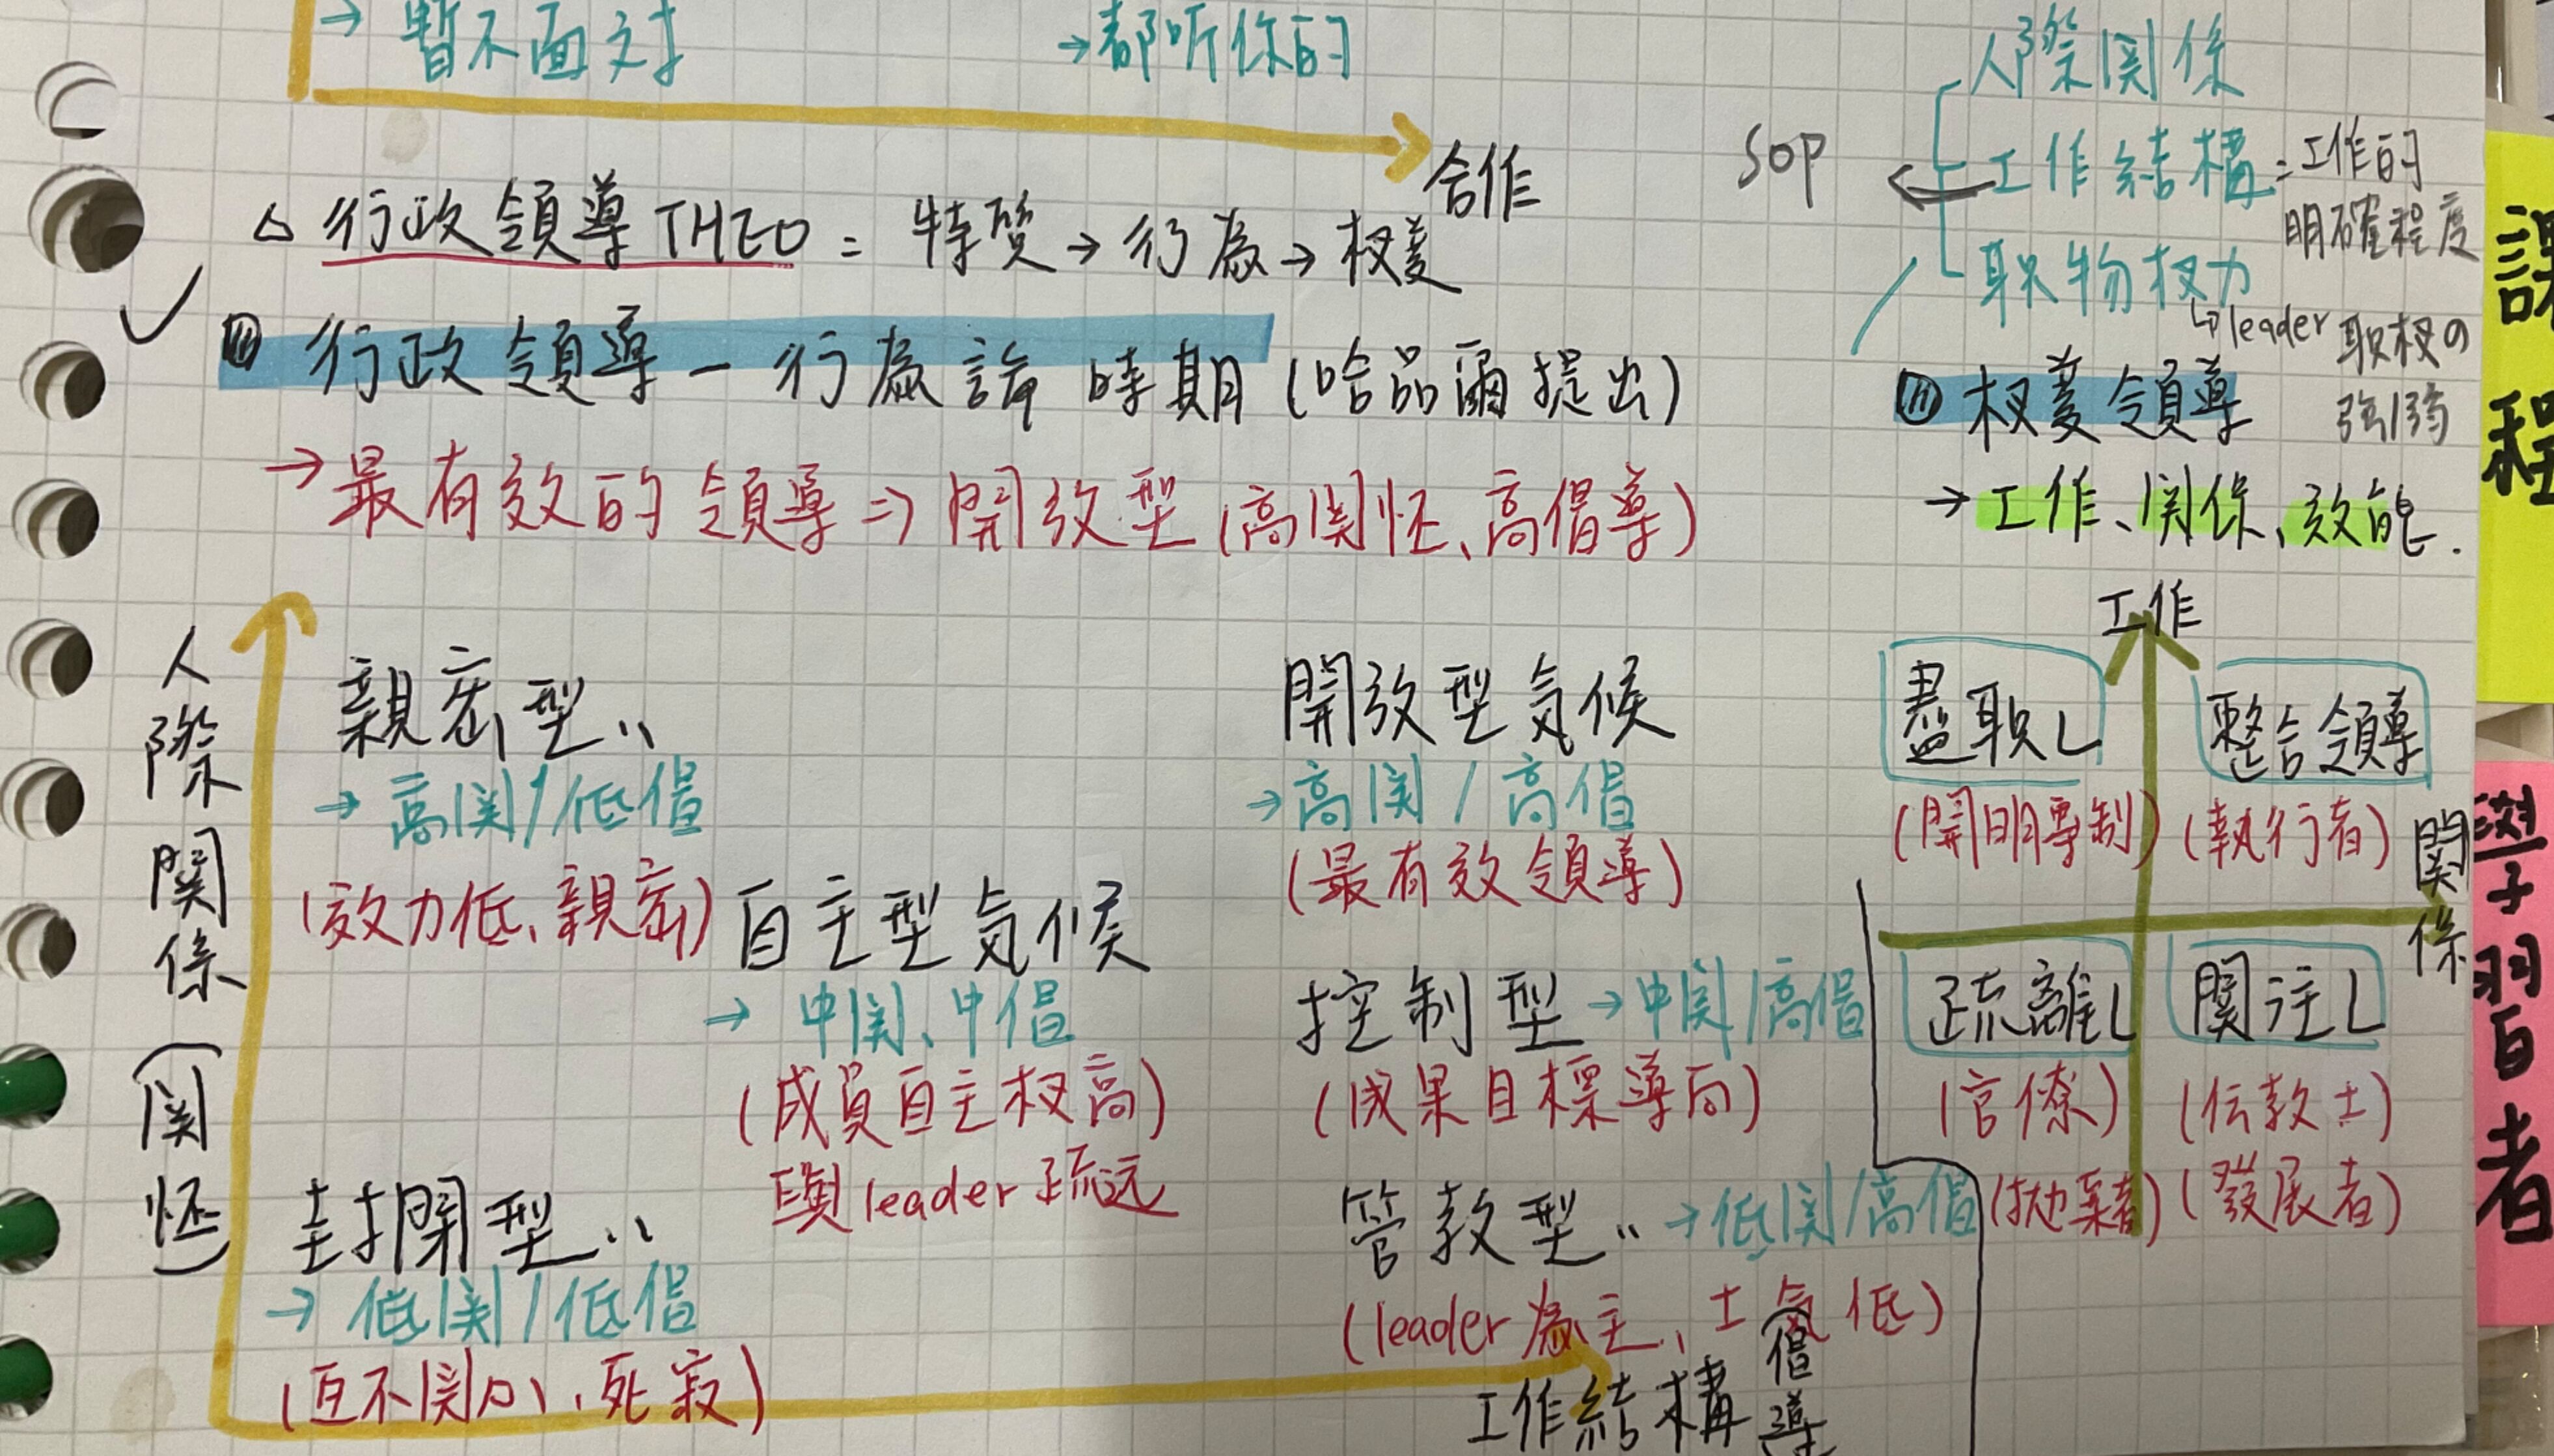 → 暫不面对
→都听你的
合作
△ 行政領導THEO = 特質→行為→权变
行政領導－行為論時期(哈品爾提出)
→最有效的領導⇒開放型(高関怀、高倡導)
人際関係
SOP ← 工作結構 = 工作的明確程度
职物权力
↳leader 职权の強弱
权變領導
→工作、関係、效能.
人際關係(関怀)
親密型..
→高関/低倡
(效力低、親密)
開放型気候
→高関/高倡
(最有效領導)
自主型気候
→中関、中倡
(成員自主权高)
與leader疏远
控制型→中関/高倡
(成果目標導向)
封閉型..
→低関/低倡
(互不関心、死寂)
管教型..→低関/高倡
(leader為主、士氣低)
工作結構
(倡導
工作
盡职L
(開明專制)
整合領導
(執行者)
關係
疏離L
(官僚)
(拋棄者)
關注L
(伝教士)
(發展者)
課程
學習者